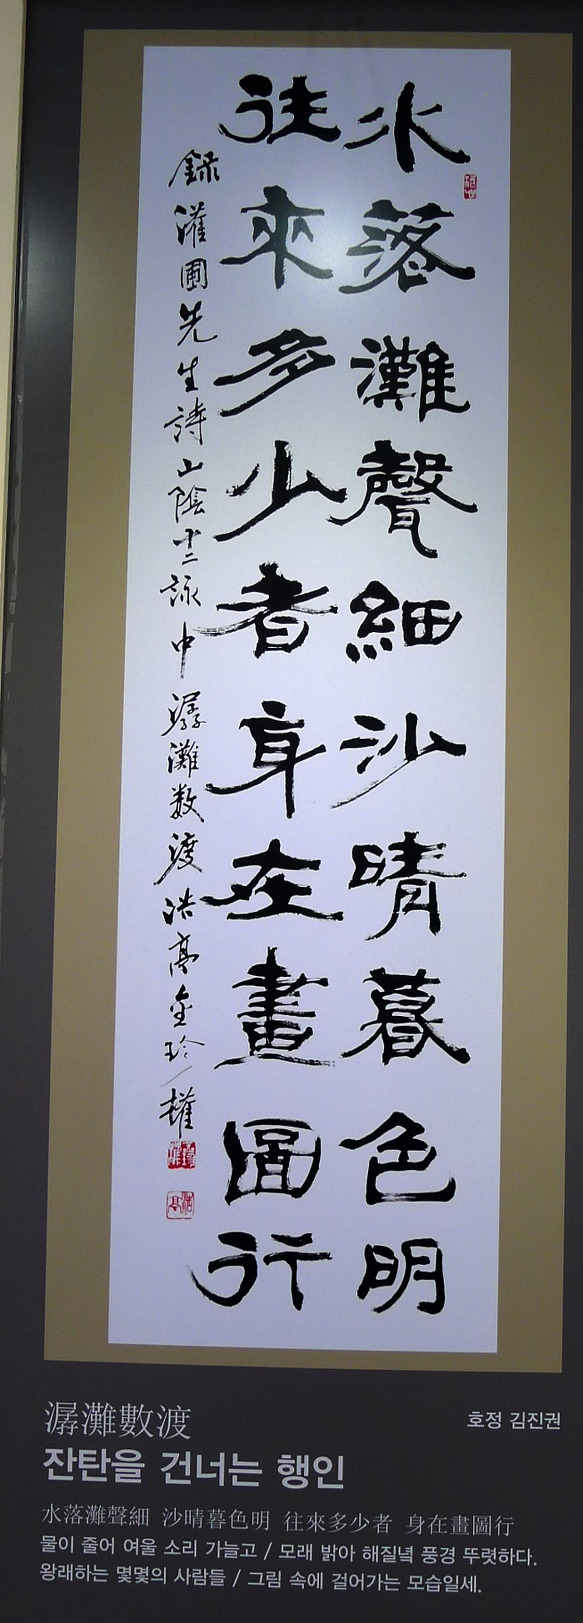 水落灘聲細沙晴暮色明
往來多少者身在畫圖行
錄灌圃先生詩山陰十二詠中潺灘数渡浩亭金珍權
潺灘數渡
호정 김진권
잔탄을 건너는 행인
水落灘聲細 沙晴暮色明 往來多少者 身在畫圖行
물이 줄어 여울 소리 가늘고 / 모래 밝아 해질녘 풍경 뚜렷하다.
왕래하는 몇몇의 사람들 / 그림 속에 걸어가는 모습일세.